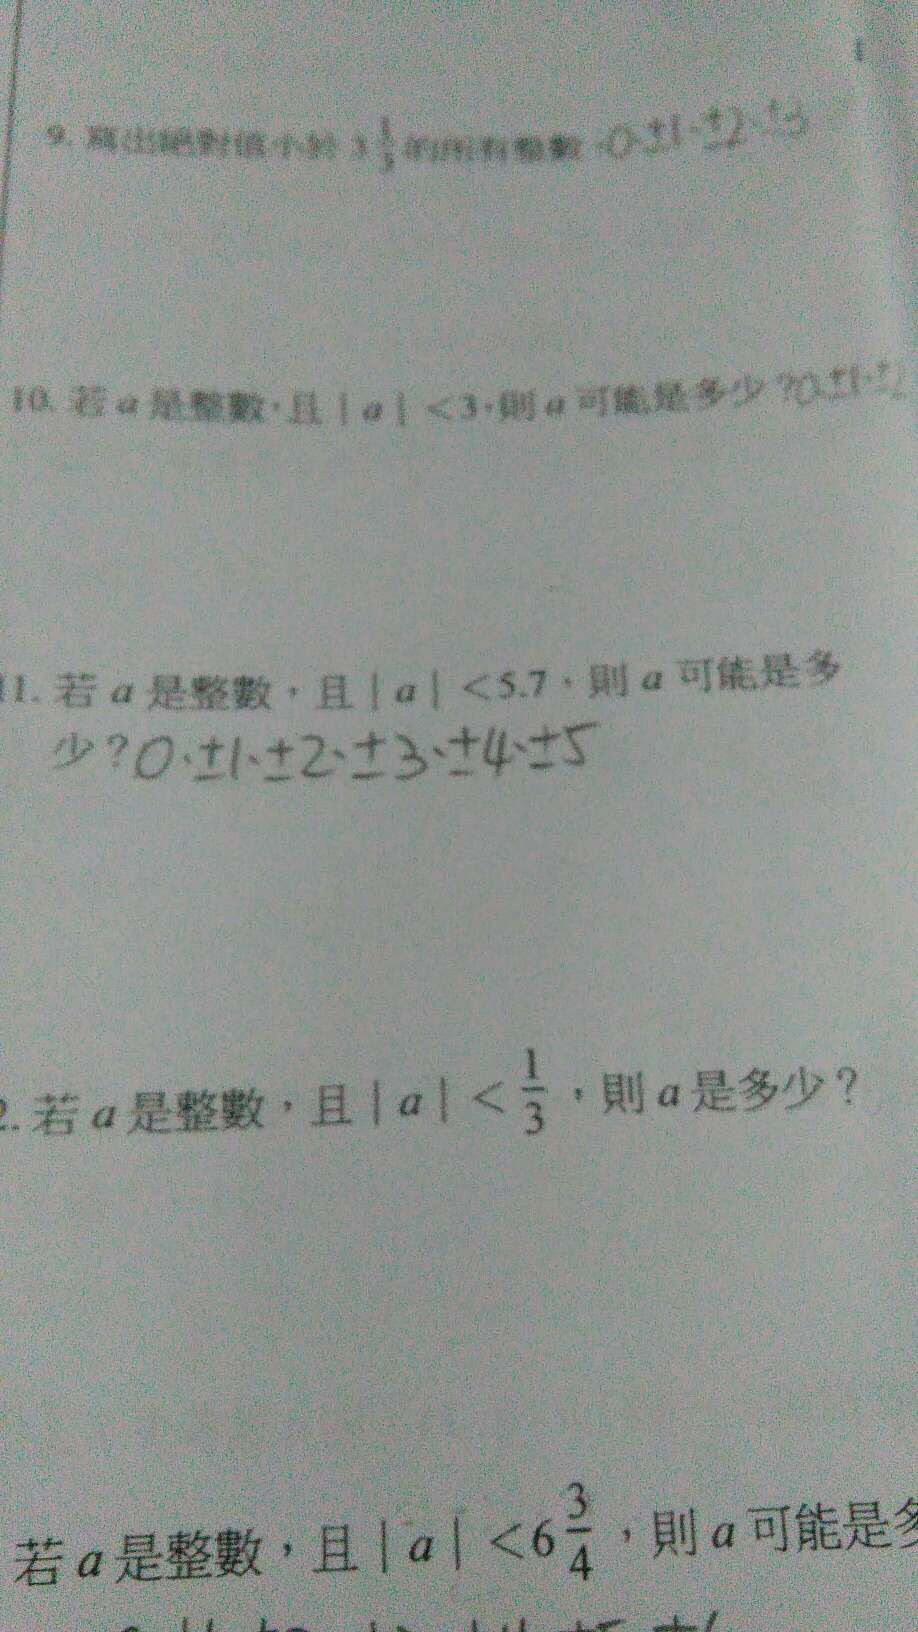 9. 寫出絕對值小於 3 1/3 的所有整數。0、±1、±2、±3
10. 若 a 是整數,且 | a | <3,則 a 可能是多少?0、±1、±2
11. 若 a 是整數,且 | a | <5.7,則 a 可能是多
少?0、±1、±2、±3、±4、±5
2. 若 a 是整數,且 | a | < 1/3 ,則 a 是多少?
若 a 是整數,且 | a | <6 3/4 ,則 a 可能是多